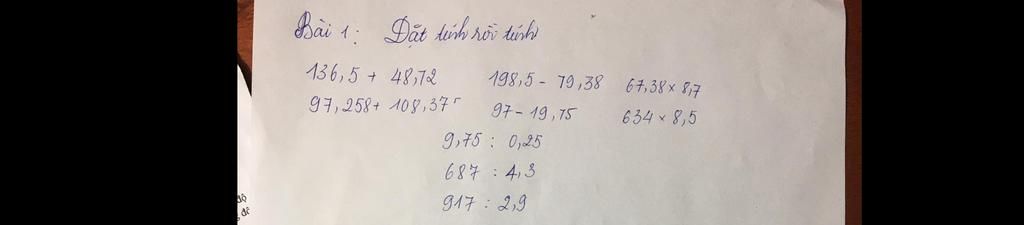 Bài 1: Đặt tính rồi tính
136,5 + 48,72 198,5 - 79,38 67,38 x 8,7
97,258 + 108,37 97 - 19,75 634 x 8,5
9,75 : 0,25
687 : 4,3
917 : 2,9